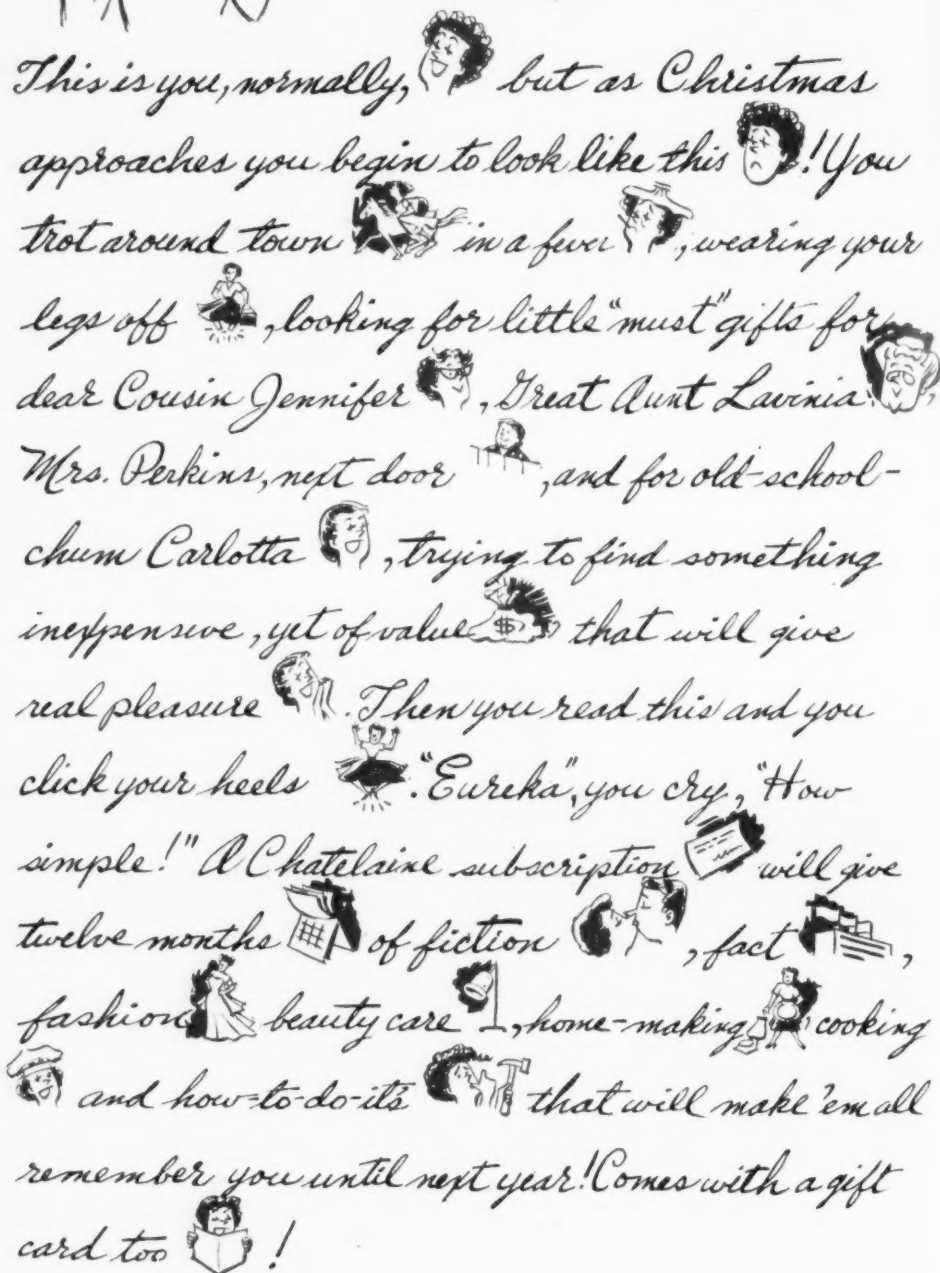 This is you, normally, but as Christmas
approaches you begin to look like this ! You
trot around town in a fever , wearing your
legs off , looking for little "must" gifts for
dear Cousin Jennifer , Great Aunt Lavinia ,
Mrs. Perkins, next door , and for old-school-
chum Carlotta , trying to find something
inexpensive, yet of value $ that will give
real pleasure . Then you read this and you
click your heels . "Eureka", you cry, "How
simple!" A Chatelaine subscription will give
twelve months of fiction , fact ,
fashion beauty care , home-making cooking
and how-to-do-its that will make 'em all
remember you until next year! Comes with a gift
card too !